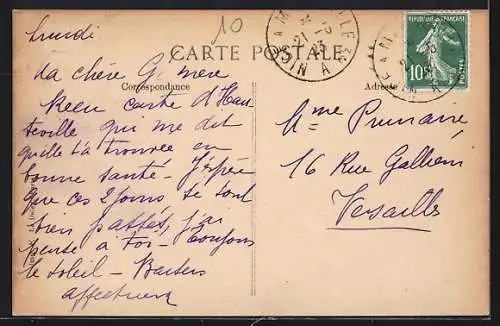 Lundi
10
CARTE POSTALE
Correspondance
Adresse
RÉPUBLIQUE FRANÇAISE
10c
POSTES
Ma chère G. mère
Reçu carte d'Hau
teville qui me dit
qu'elle t'a trouvée en
bonne santé - J'espère
que ces 2 jours se sont
bien passés, j'ai
pensé à toi - Toujours
le soleil - Baisers
affectueux
Mme Prunaire
16 Rue Gallieni
Versailles